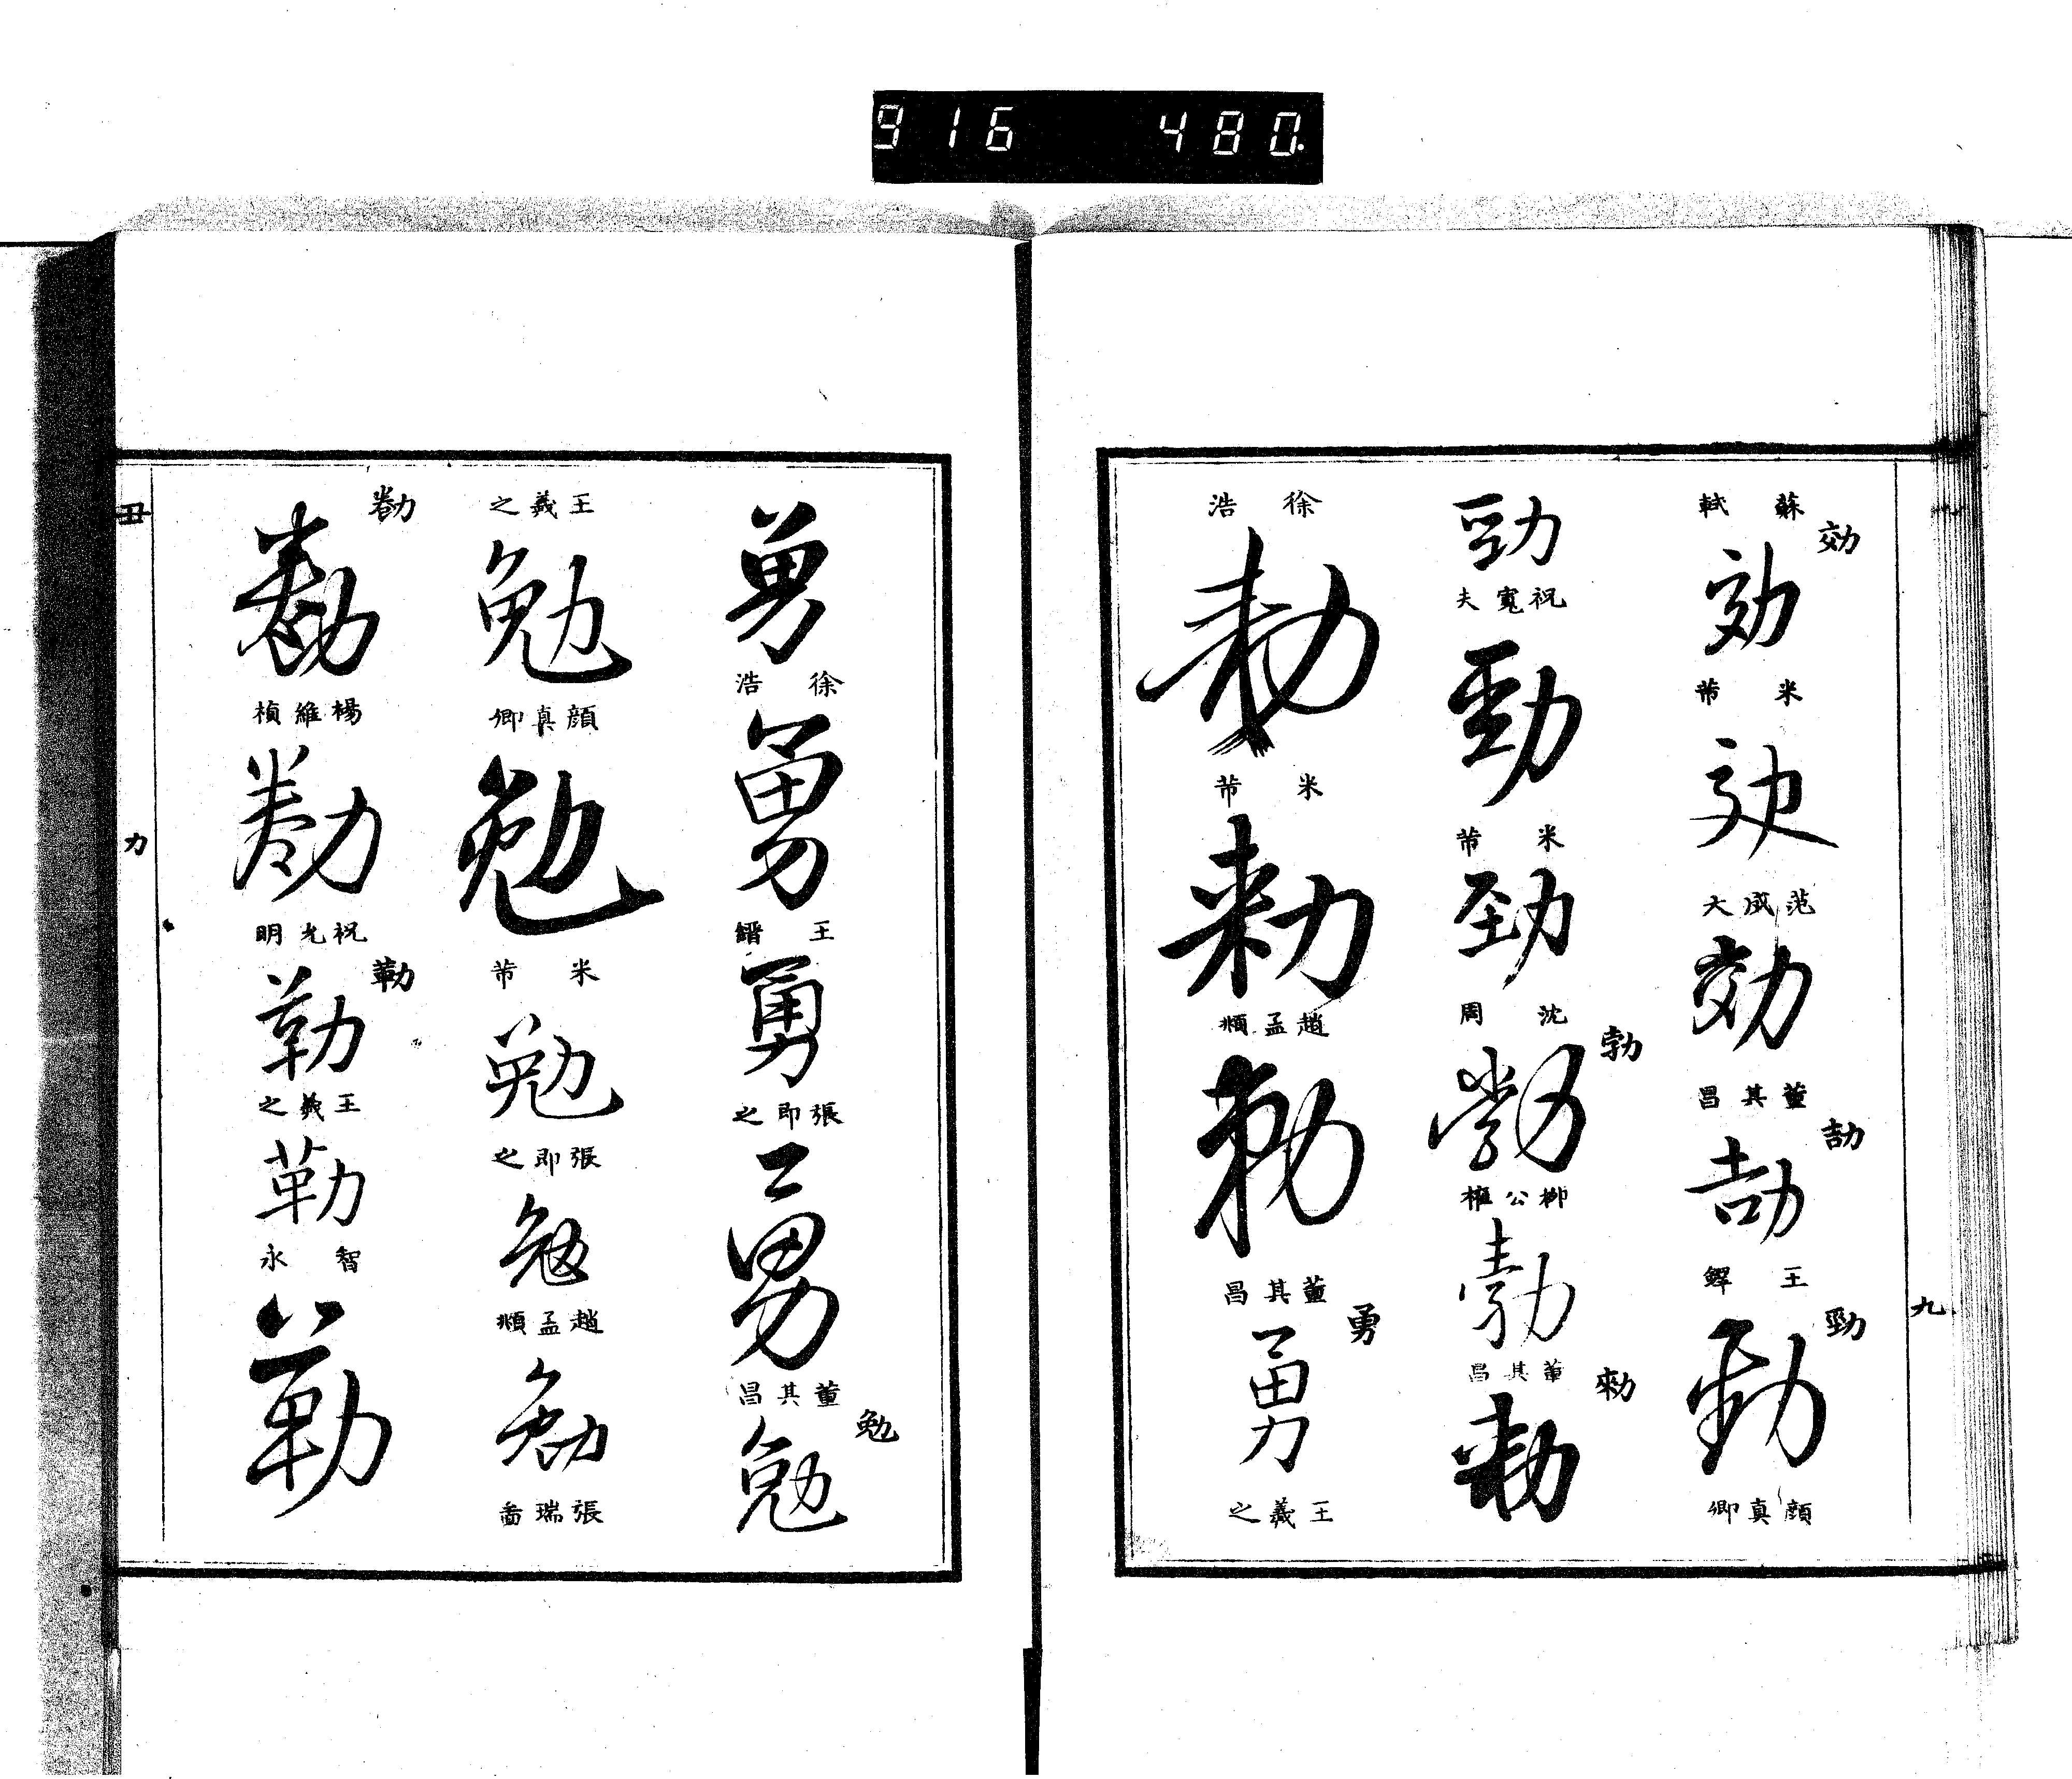 916 480.
九
蘇軾
効
効
米芾
効
范成大
効
董其昌
劼
劼
王鐸
勁
勁
顏真卿
勁
祝寬夫
勁
米芾
勁
沈周
勃
勃
柳公權
勃
董其昌
勑
勑
徐浩
勑
米芾
勑
趙孟頫
勑
董其昌
勇
勇
王羲之
勇
徐浩
勇
王
勇
張即之
勇
董其昌
勉
勉
王羲之
勉
顏真卿
勉
米芾
勉
張即之
勉
趙孟頫
勉
張瑞啚
勌
勌
楊維楨
勌
祝允明
勒
勒
王羲之
勒
智永
勒
丑
力